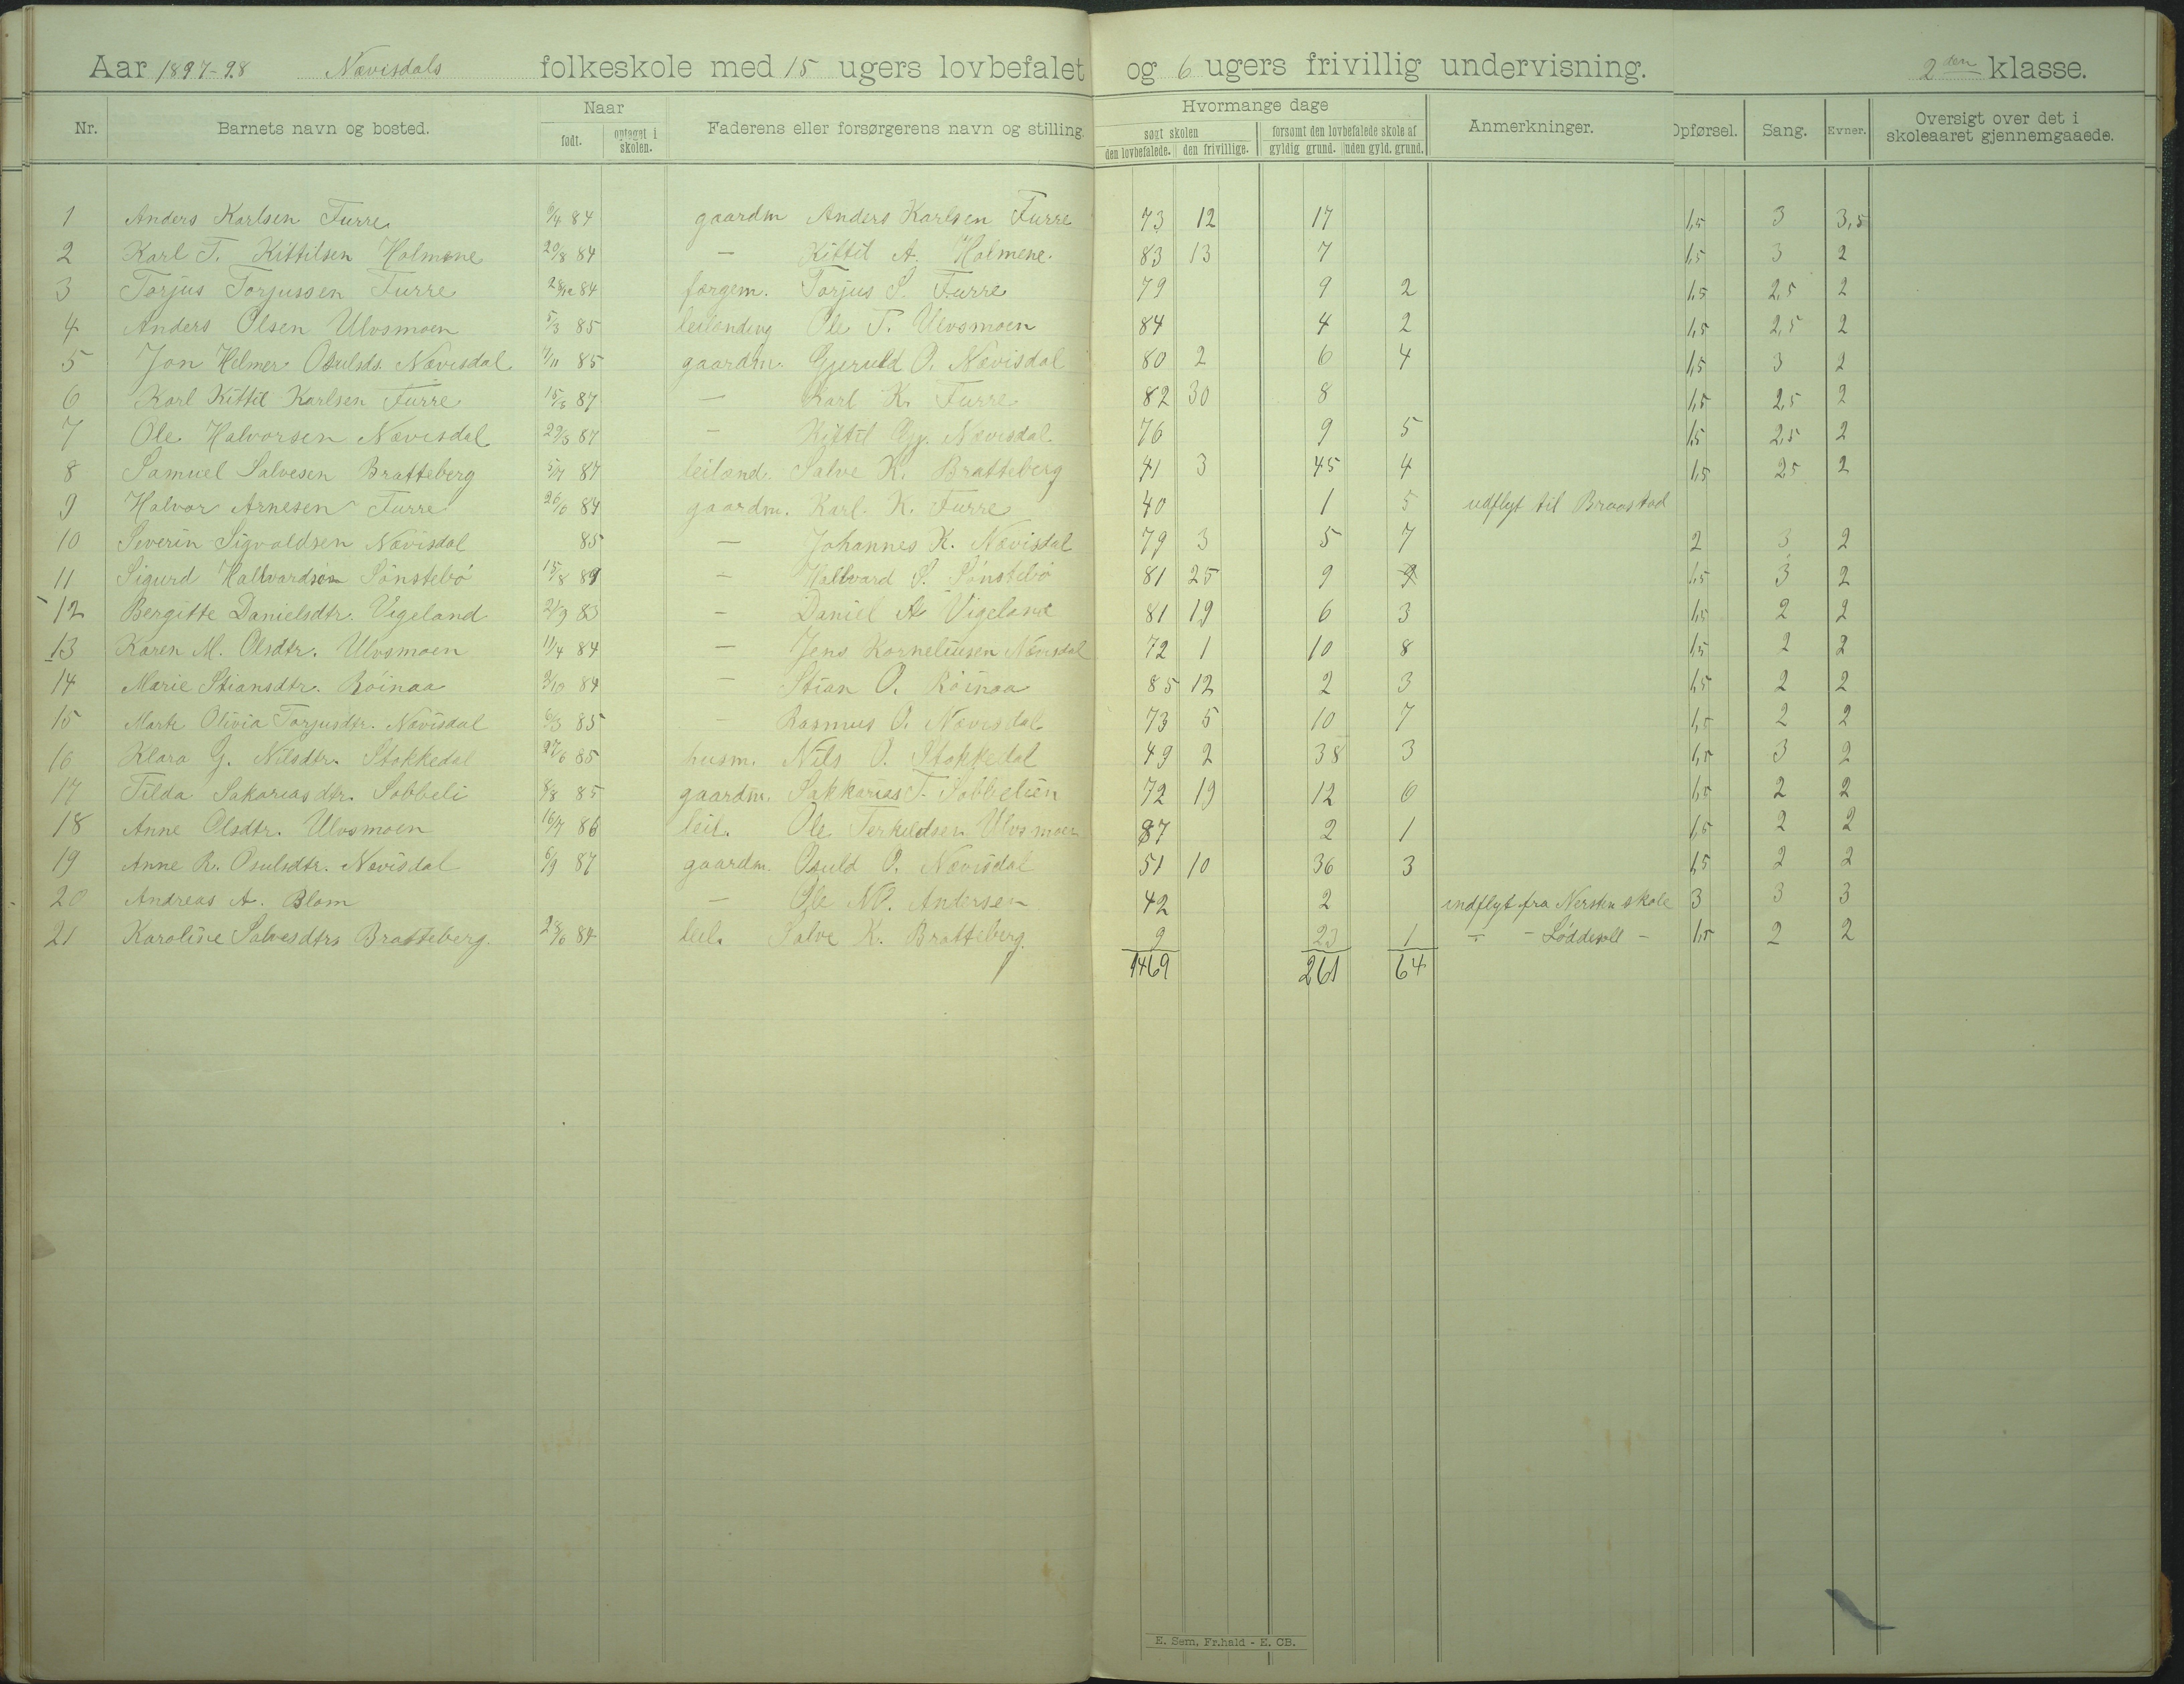 Aar 1897-98 Nævisdals folkeskole med 15 ugers lovbefalet og 6 ugers frivillig undervisning. 2den klasse.
Nr. Barnets navn og bosted. Naar født. optaget i skolen. Faderens eller forsørgerens navn og stilling. Hvormange dage søgt skolen den lovbefalede. den frivillige. forsømt den lovbefalede skole af gyldig grund. uden gyld. grund. Anmerkninger. Opførsel. Sang. Evner. Oversigt over det i skoleaaret gjennemgaaede.
1 Anders Karlsen Furre 84 gaardm Anders Karlsen Furre 73 12 17 1,5 3 3,5
2 Karl T. Kittilsen Holmene 20/8 84 — Kittil A. Holmene. 83 13 7 1,5 3 2
3 Torjus Torjussen Furre 84 færgem. Torjus S. Furre 79 9 2 1,5 2,5 2
4 Anders Olsen Ulvsmoen 5/3 85 leilending Ole T. Ulvsmoen 84 4 2 1,5 2,5 2
5 Jon Helmer Osulds. Nævisdal 85 gaardm. Gjeruld O. Nævisdal 80 2 6 4 1,5 3 2
6 Karl Kittil Karlsen Furre 87 — Karl K. Furre 82 30 8 1,5 2,5 2
7 Ole Halvorsen Nævisdal 29/3 87 — Kittil Gj. Nævisdal. 76 9 5 1,5 2,5 2
8 Samuel Salvesen Bratteberg 5/7 87 leilænd. Salve K. Bratteberg 41 3 45 4 1,5 2,5 2
9 Halvor Arnesen Furre 84 gaardm. Karl K. Furre 40 1 5 udflyt til Braastad
10 Severin Sigvaldsen Nævisdal 85 — Johannes K. Nævisdal 79 3 5 7 2 3 2
11 Sigurd Hallvardsen Sönstebö 15/8 89 — Hallvard S. Sönstebö 81 25 9 1,5 3 2
12 Bergitte Danielsdtr. Vigeland 21/9 83 — Daniel A Vigeland 81 19 6 3 1,5 2 2
13 Karen M. Olsdtr. Ulvsmoen 11/4 84 — Jens Korneliusen Nævisdal 72 1 10 8 1,5 2 2
14 Marie Stiansdtr. Röinaa 3/10 84 — Stian O. Röinaa 85 12 2 3 1,5 2 2
15 Marte Olivia Torjusdtr. Nævisdal 6/3 85 — Rasmus O. Nævisdal 73 5 10 7 1,5 2 2
16 Klara G. Nilsdtr. Stokkedal 27/6 85 husm. Nils O. Stokkedal 49 2 38 3 1,5 3 2
17 Tilda Sakariasdtr. Lobbeli 8/8 85 gaardm. Sakkarias T. 72 19 12 0 1,5 2 2
18 Anne Olsdtr. Ulvsmoen 16/7 86 leil. Ole Terkeldsen Ulvsmoen 87 2 1 1,5 2 2
19 Anne R. Osulsdtr. Nævisdal 6/9 87 gaardm. Osuld O. Nævisdal 51 10 36 3 1,5 2 2
20 Andreas A. Blom — Ole Andersen 42 2 indflyt fra skole 3 3 3
21 Karoline Salvesdtr Bratteberg. 84 leil. Salve K. Bratteberg. 9 23 1 - - Löddesöl - 1,5 2 2
1469 261 64
E. Sem, Fr.hald - E. CB.